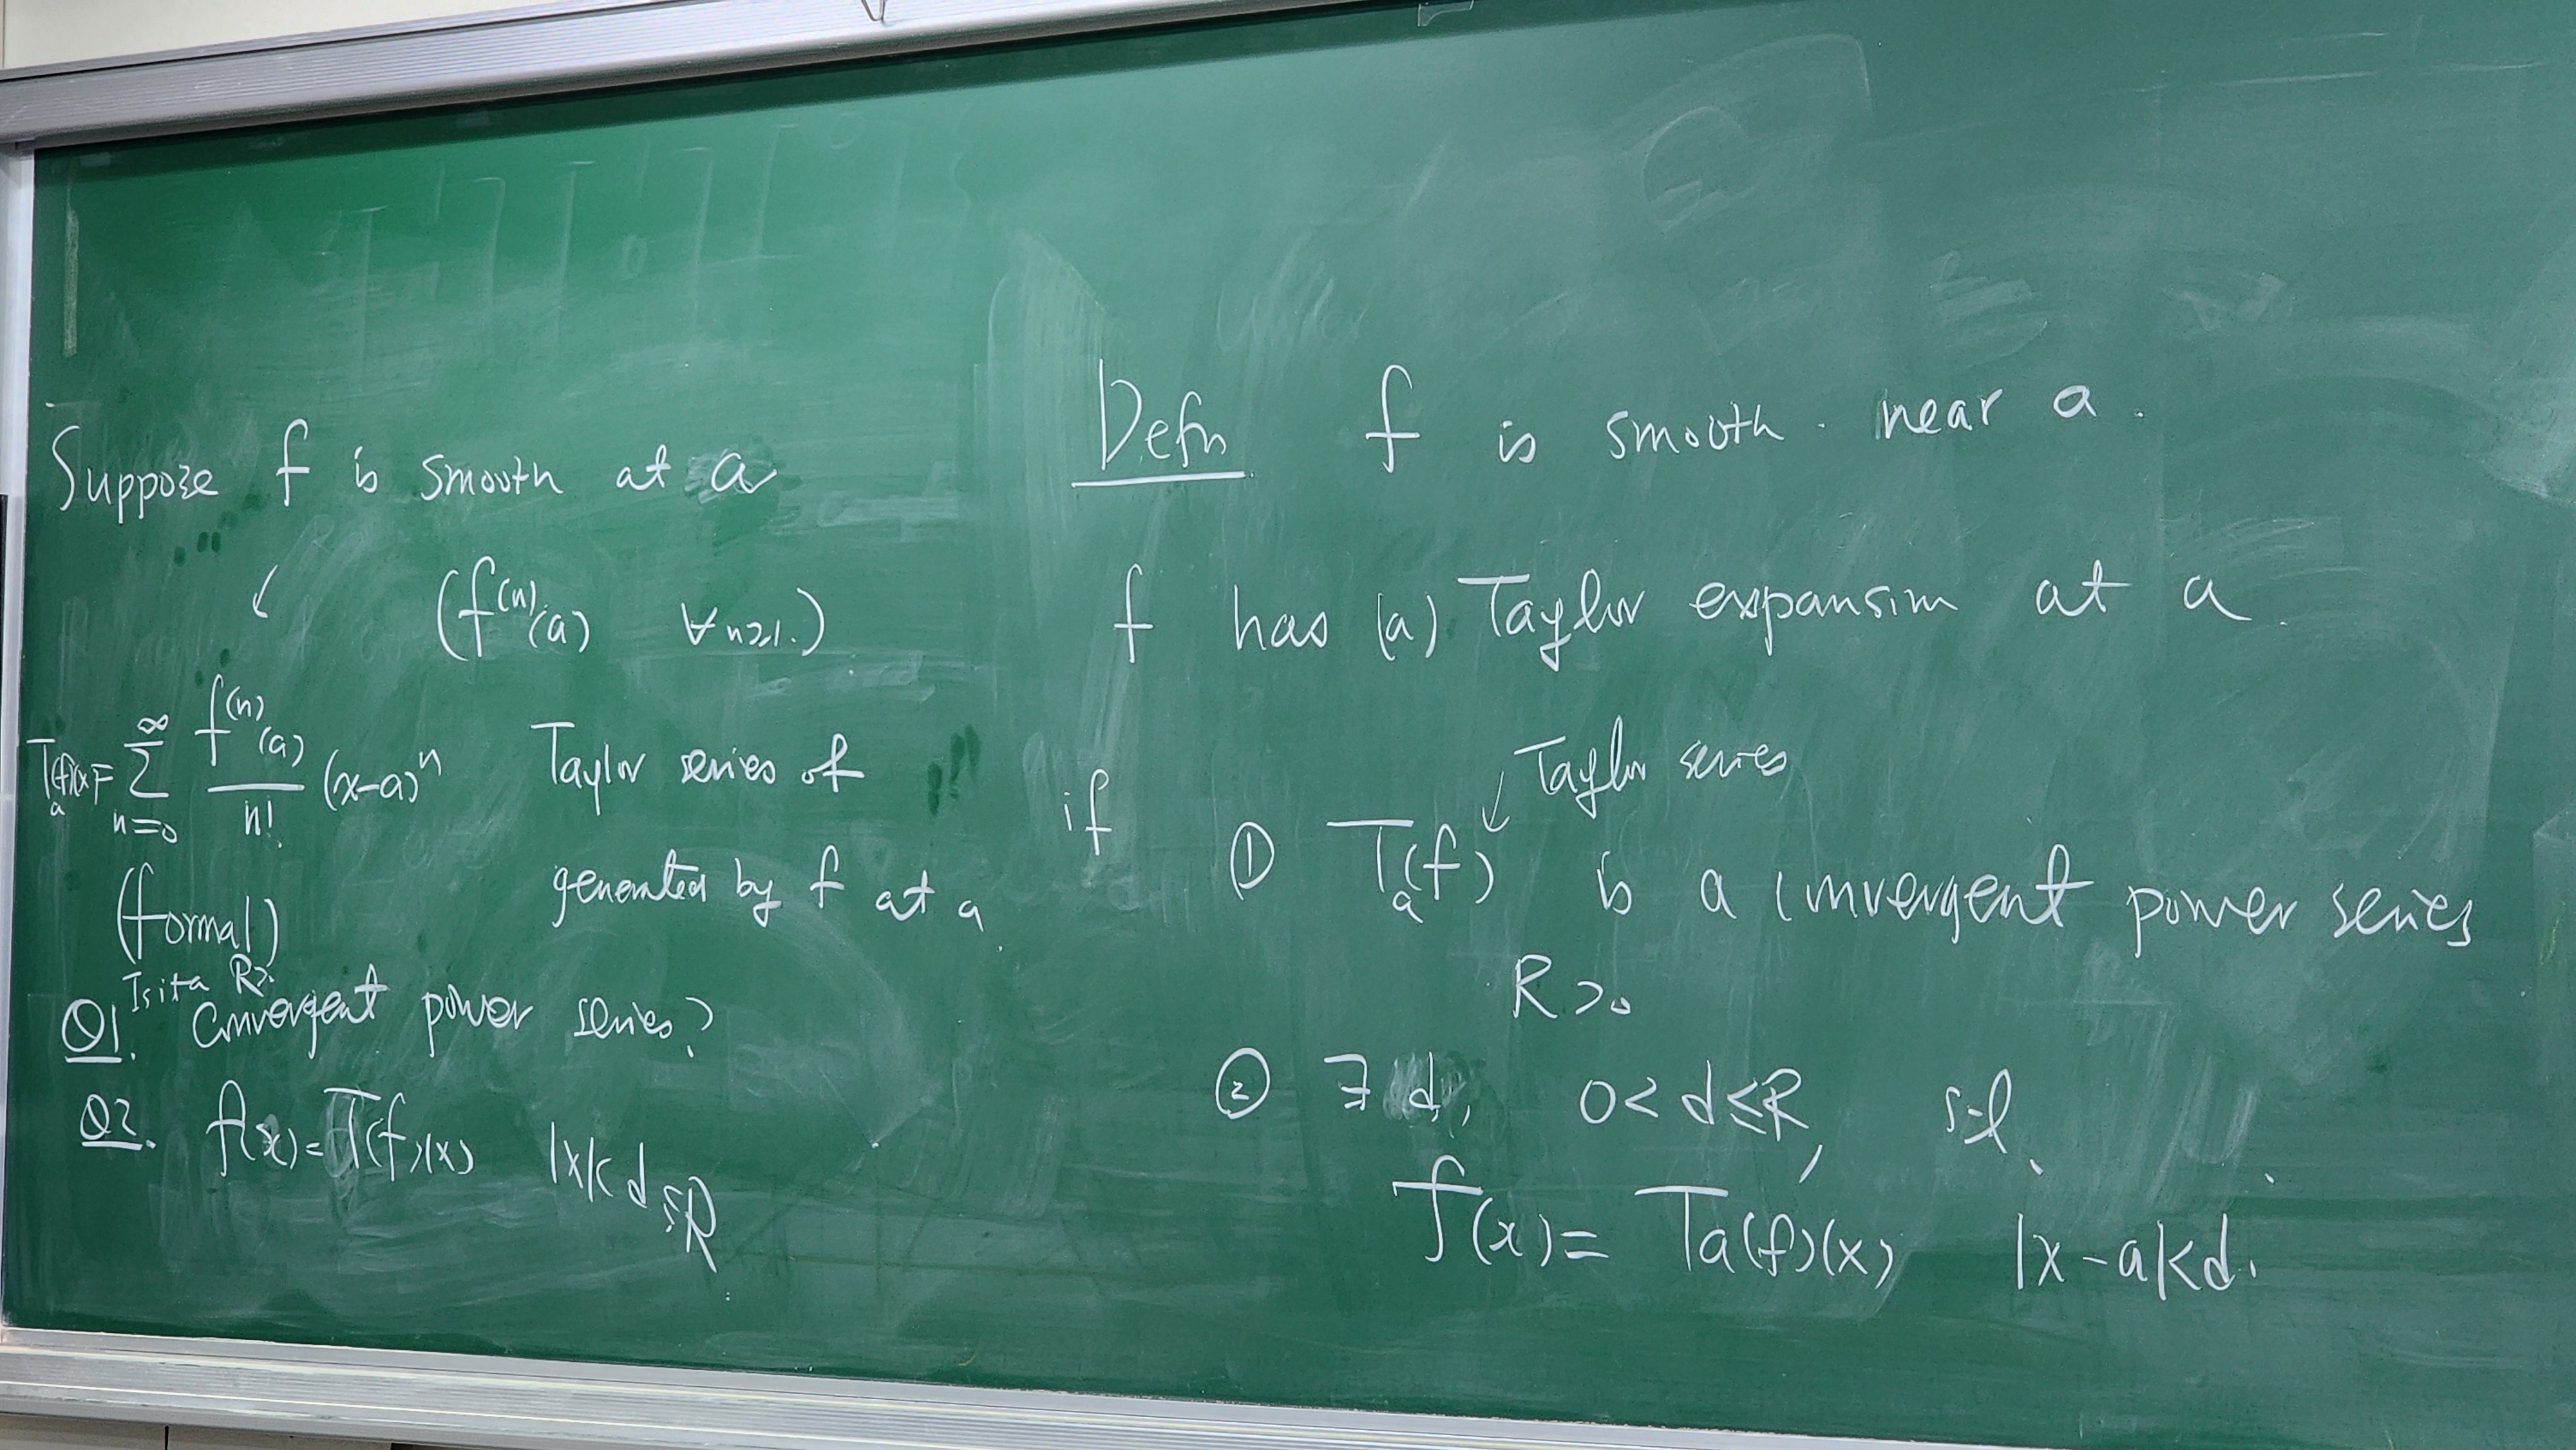 Suppose f is smooth at a
(f⁽ⁿ⁾(a) ∀n≥1.)
Tₐ(f)(x)= ∑_{n=0}^{∞} f⁽ⁿ⁾(a)/n! (x-a)ⁿ Taylor series of
generated by f at a.
(formal)
Is it a R>
Q1. Convergent power series?
Q2. f(x)=T(f)(x) |x|<d ≤R
Defn f is smooth near a.
f has (a) Taylor expansion at a.
↙ Taylor series
if ① Tₐ(f) is a convergent power series
R>0
② ∃ d, 0<d≤R, s.t.
f(x)= Ta(f)(x) |x-a|<d.